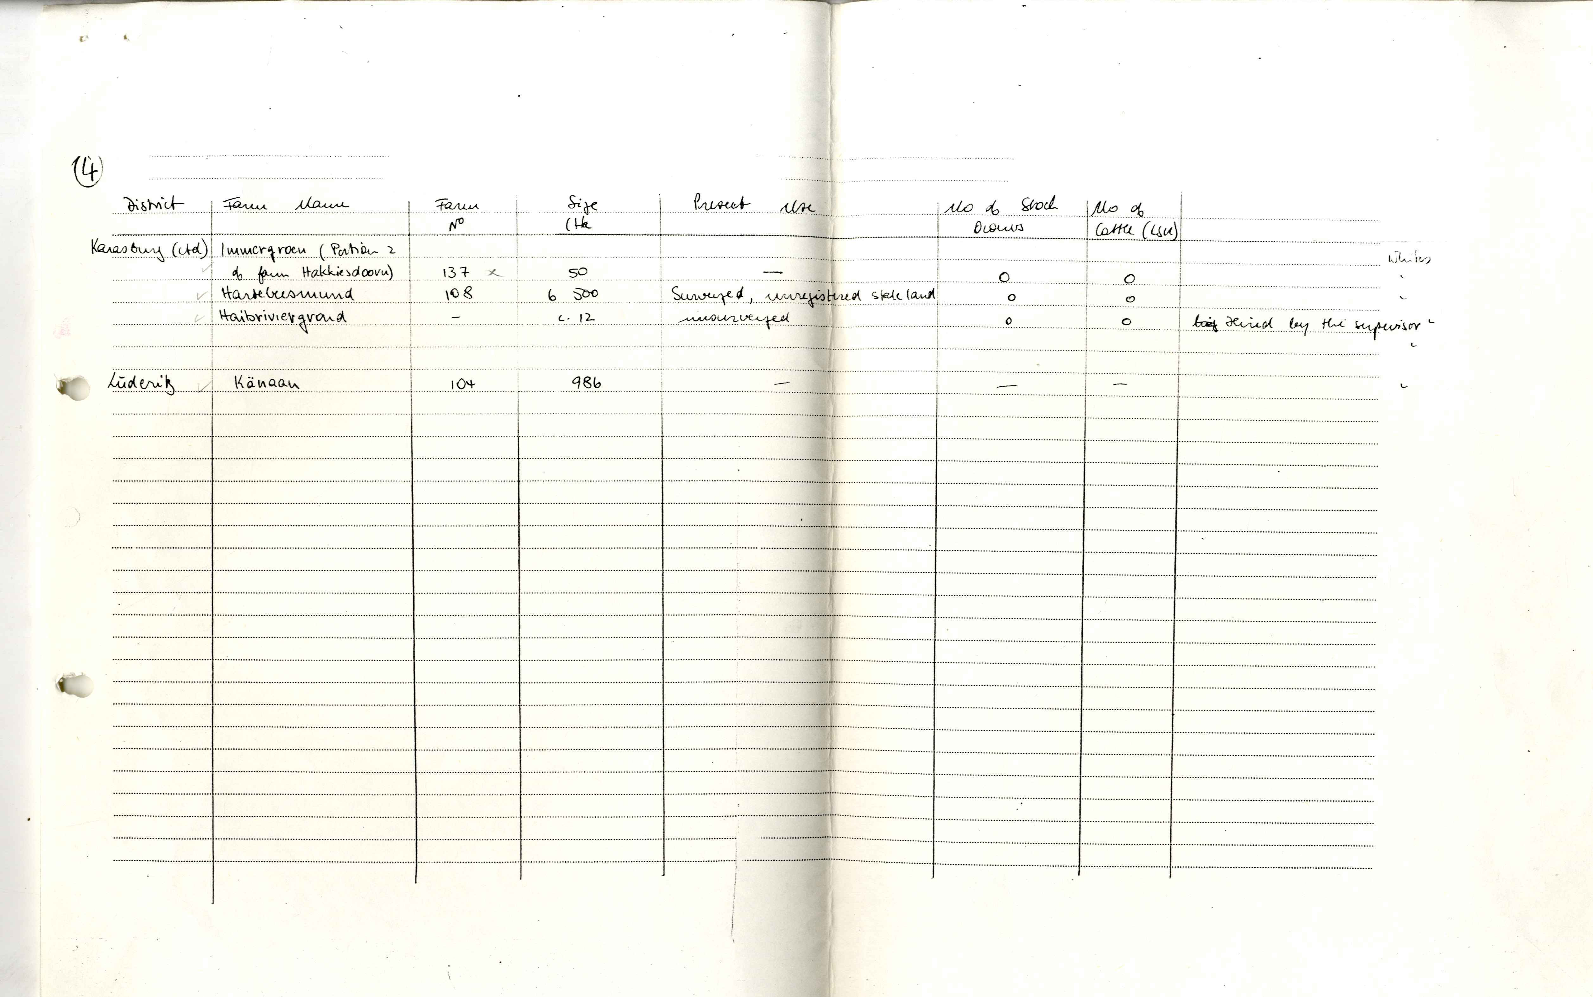 (4)
District Farm Name Farm Size Present Use No of Stock No of
No (Ha Owners Cattle (LSU)
Karasburg (ctd) Immergroen (Portion 2
Whites
of farm Hakkiesdoorn) 137 x 50 — 0 0 "
Hartebeesmund 108 6 500 Surveyed, unregistered state land 0 0 "
Haibriviergrond - c. 12 unsurveyed 0 0 hired by the supervisor "
"
Lüderitz Känaan 104 986 — — — "